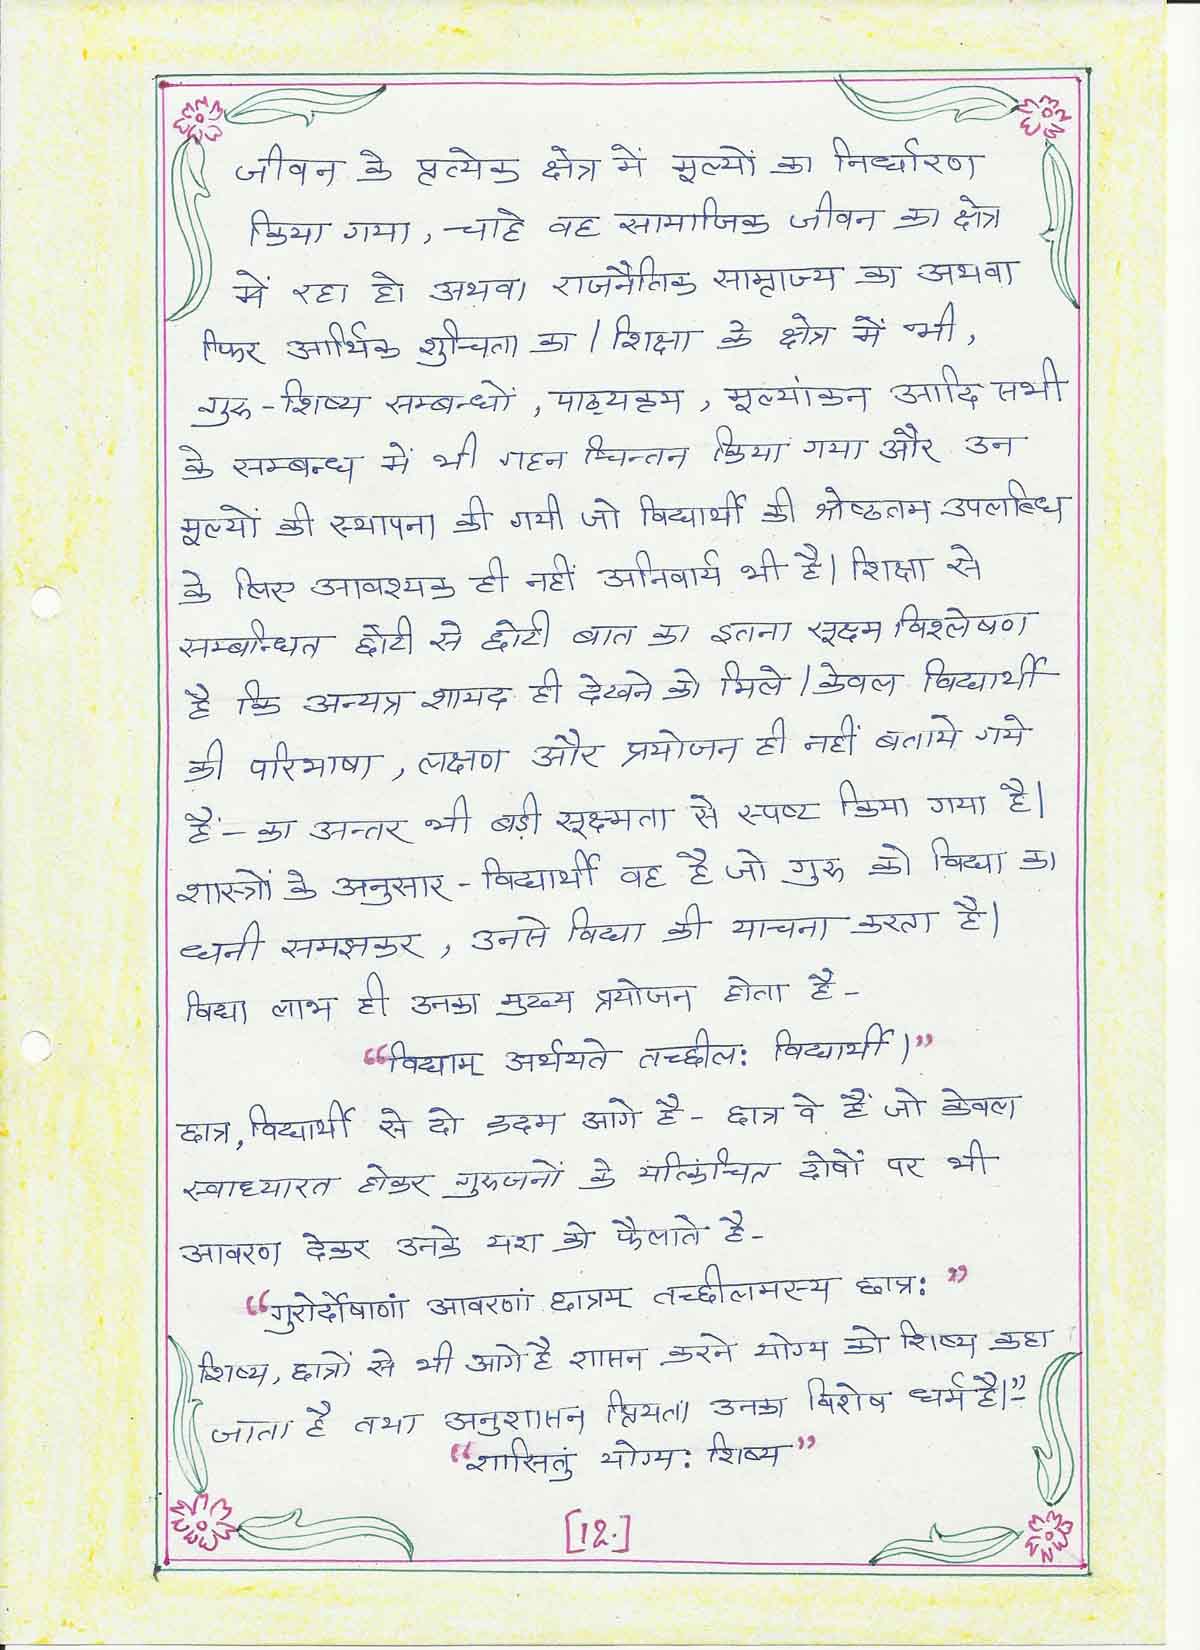 जीवन के प्रत्येक क्षेत्र में मूल्यों का निर्धारण
किया गया, चाहे वह सामाजिक जीवन का क्षेत्र
में रहा हो अथवा राजनैतिक साम्राज्य का अथवा
फिर आर्थिक शुचिता का। शिक्षा के क्षेत्र में भी,
गुरु-शिष्य सम्बन्धों, पाठ्यक्रम, मूल्यांकन आदि सभी
के सम्बन्ध में भी गहन चिन्तन किया गया और उन
मूल्यों की स्थापना की गयी जो विद्यार्थी की श्रेष्ठतम उपलब्धि
के लिए आवश्यक ही नहीं अनिवार्य भी है। शिक्षा से
सम्बन्धित छोटी से छोटी बात का इतना सूक्ष्म विश्लेषण
है कि अन्यत्र शायद ही देखने को मिले। केवल विद्यार्थी
की परिभाषा, लक्षण और प्रयोजन ही नहीं बताये गये
हैं - का अन्तर भी बड़ी सूक्ष्मता से स्पष्ट किया गया है।
शास्त्रों के अनुसार - विद्यार्थी वह है जो गुरु को विद्या का
धनी समझकर, उनसे विद्या की याचना करता है।
विद्या लाभ ही उनका मुख्य प्रयोजन होता है -
"विद्याम् अर्थयते तच्छील: विद्यार्थी।"
छात्र, विद्यार्थी से दो कदम आगे है - छात्र वे हैं जो केवल
स्वाध्यारत होकर गुरुजनों के यत्किंचित दोषों पर भी
आवरण देकर उनके यश को फैलाते है -
"गुरोर्दोषाणां आवरणां छात्रम् तच्छीलमस्य छात्र: "
शिष्य, छात्रों से भी आगे है शासन करने योग्य को शिष्य कहा
जाता है तथा अनुशासन प्रियता उनका विशेष धर्म है।"-
"शासितुं योग्य: शिष्य"
[12.]